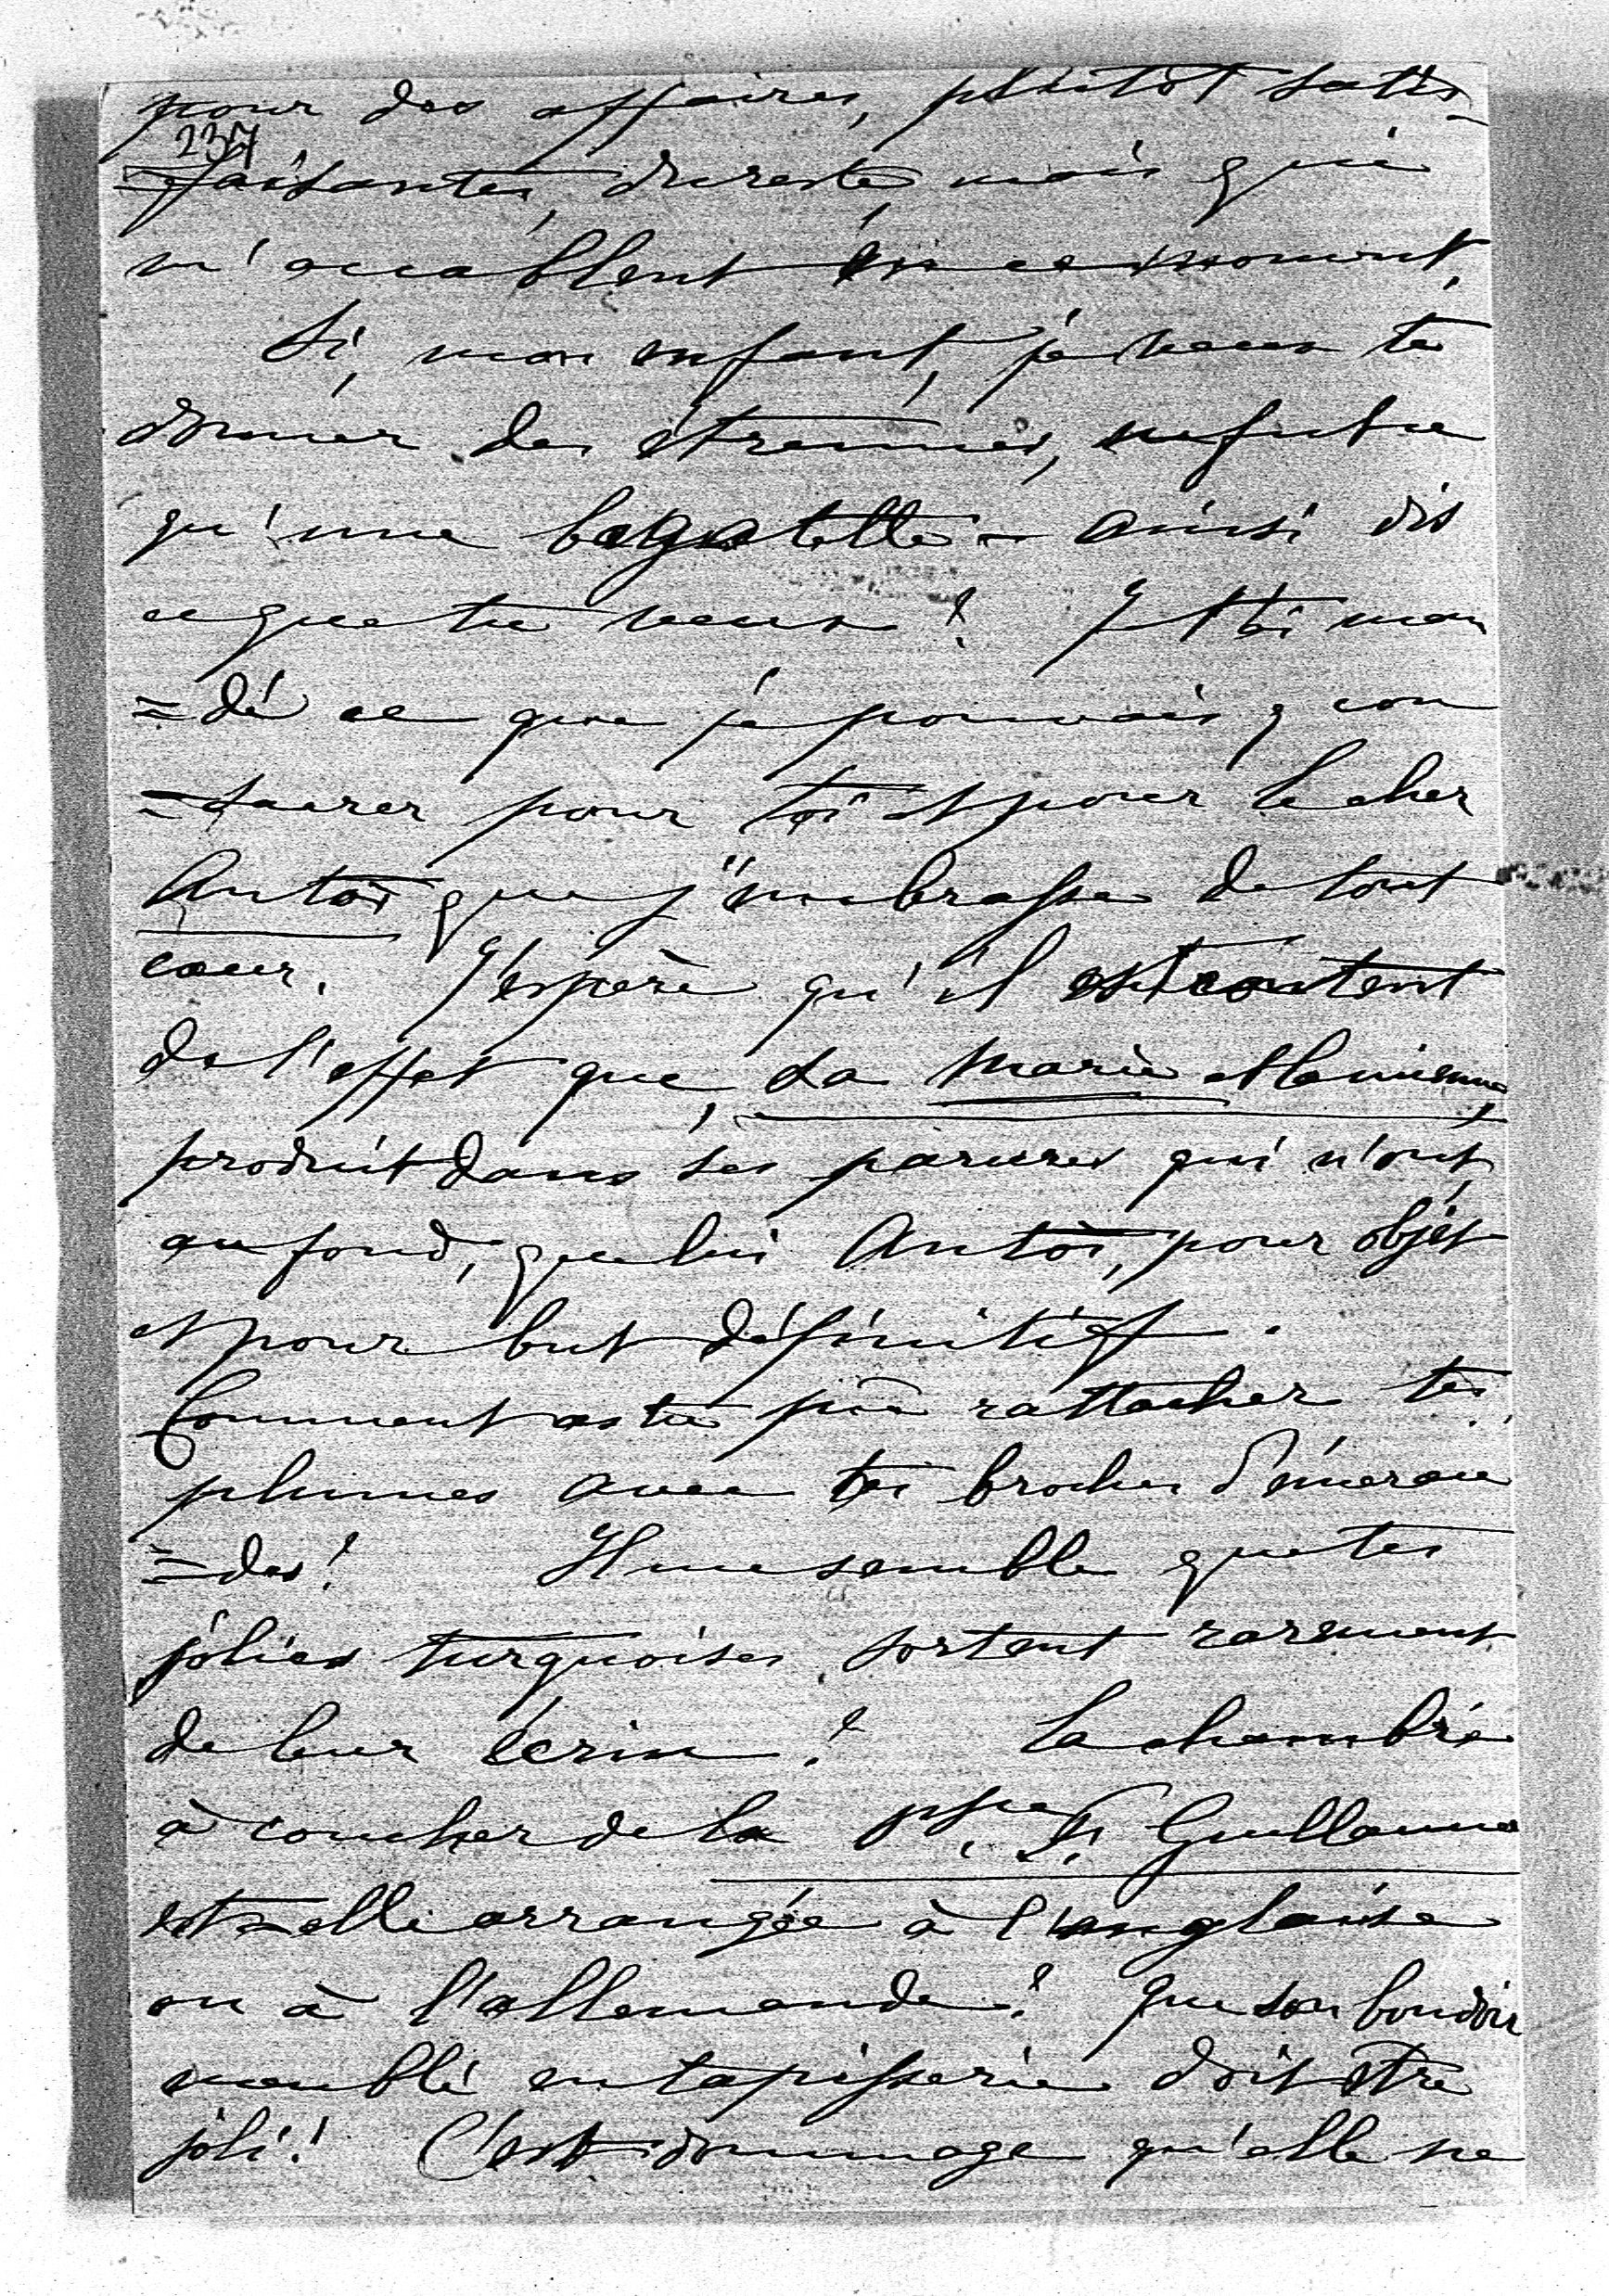 pour des affaires, plutôt satis-
237
=faisantes, dureste mais qui
m'accablent en ce moment.
Si, mon enfant, je veux te
donner des étrennes, ne fut ce
qu'une bagatelle – ainsi dis
ce que tu veux? J't'ai man
=dé ce que je pouvais, con
=sacrer pour toi et pour le cher
Antoi que j'embrasse de tout
cœur. J'espère qu'il est content
de l'effet que, sa Marie et la mienne,
produit dans ses parures qui n'ont
au fond, que lui Antoi, pour objet
et pour but définitif.
Comment as tu pû rattacher tes
plumes avec tes broches d'émerau
=des? Il me semble que tes
jolies turquoises sortent rarement
de leur écrin? La chambre
à coucher de la Psse F. Guillaume
est=elle arrangée à l'anglaise
ou à l'allemande? Que son boudoir
meublé en tapisserie doit être
joli! C'est dommage qu'elle ne